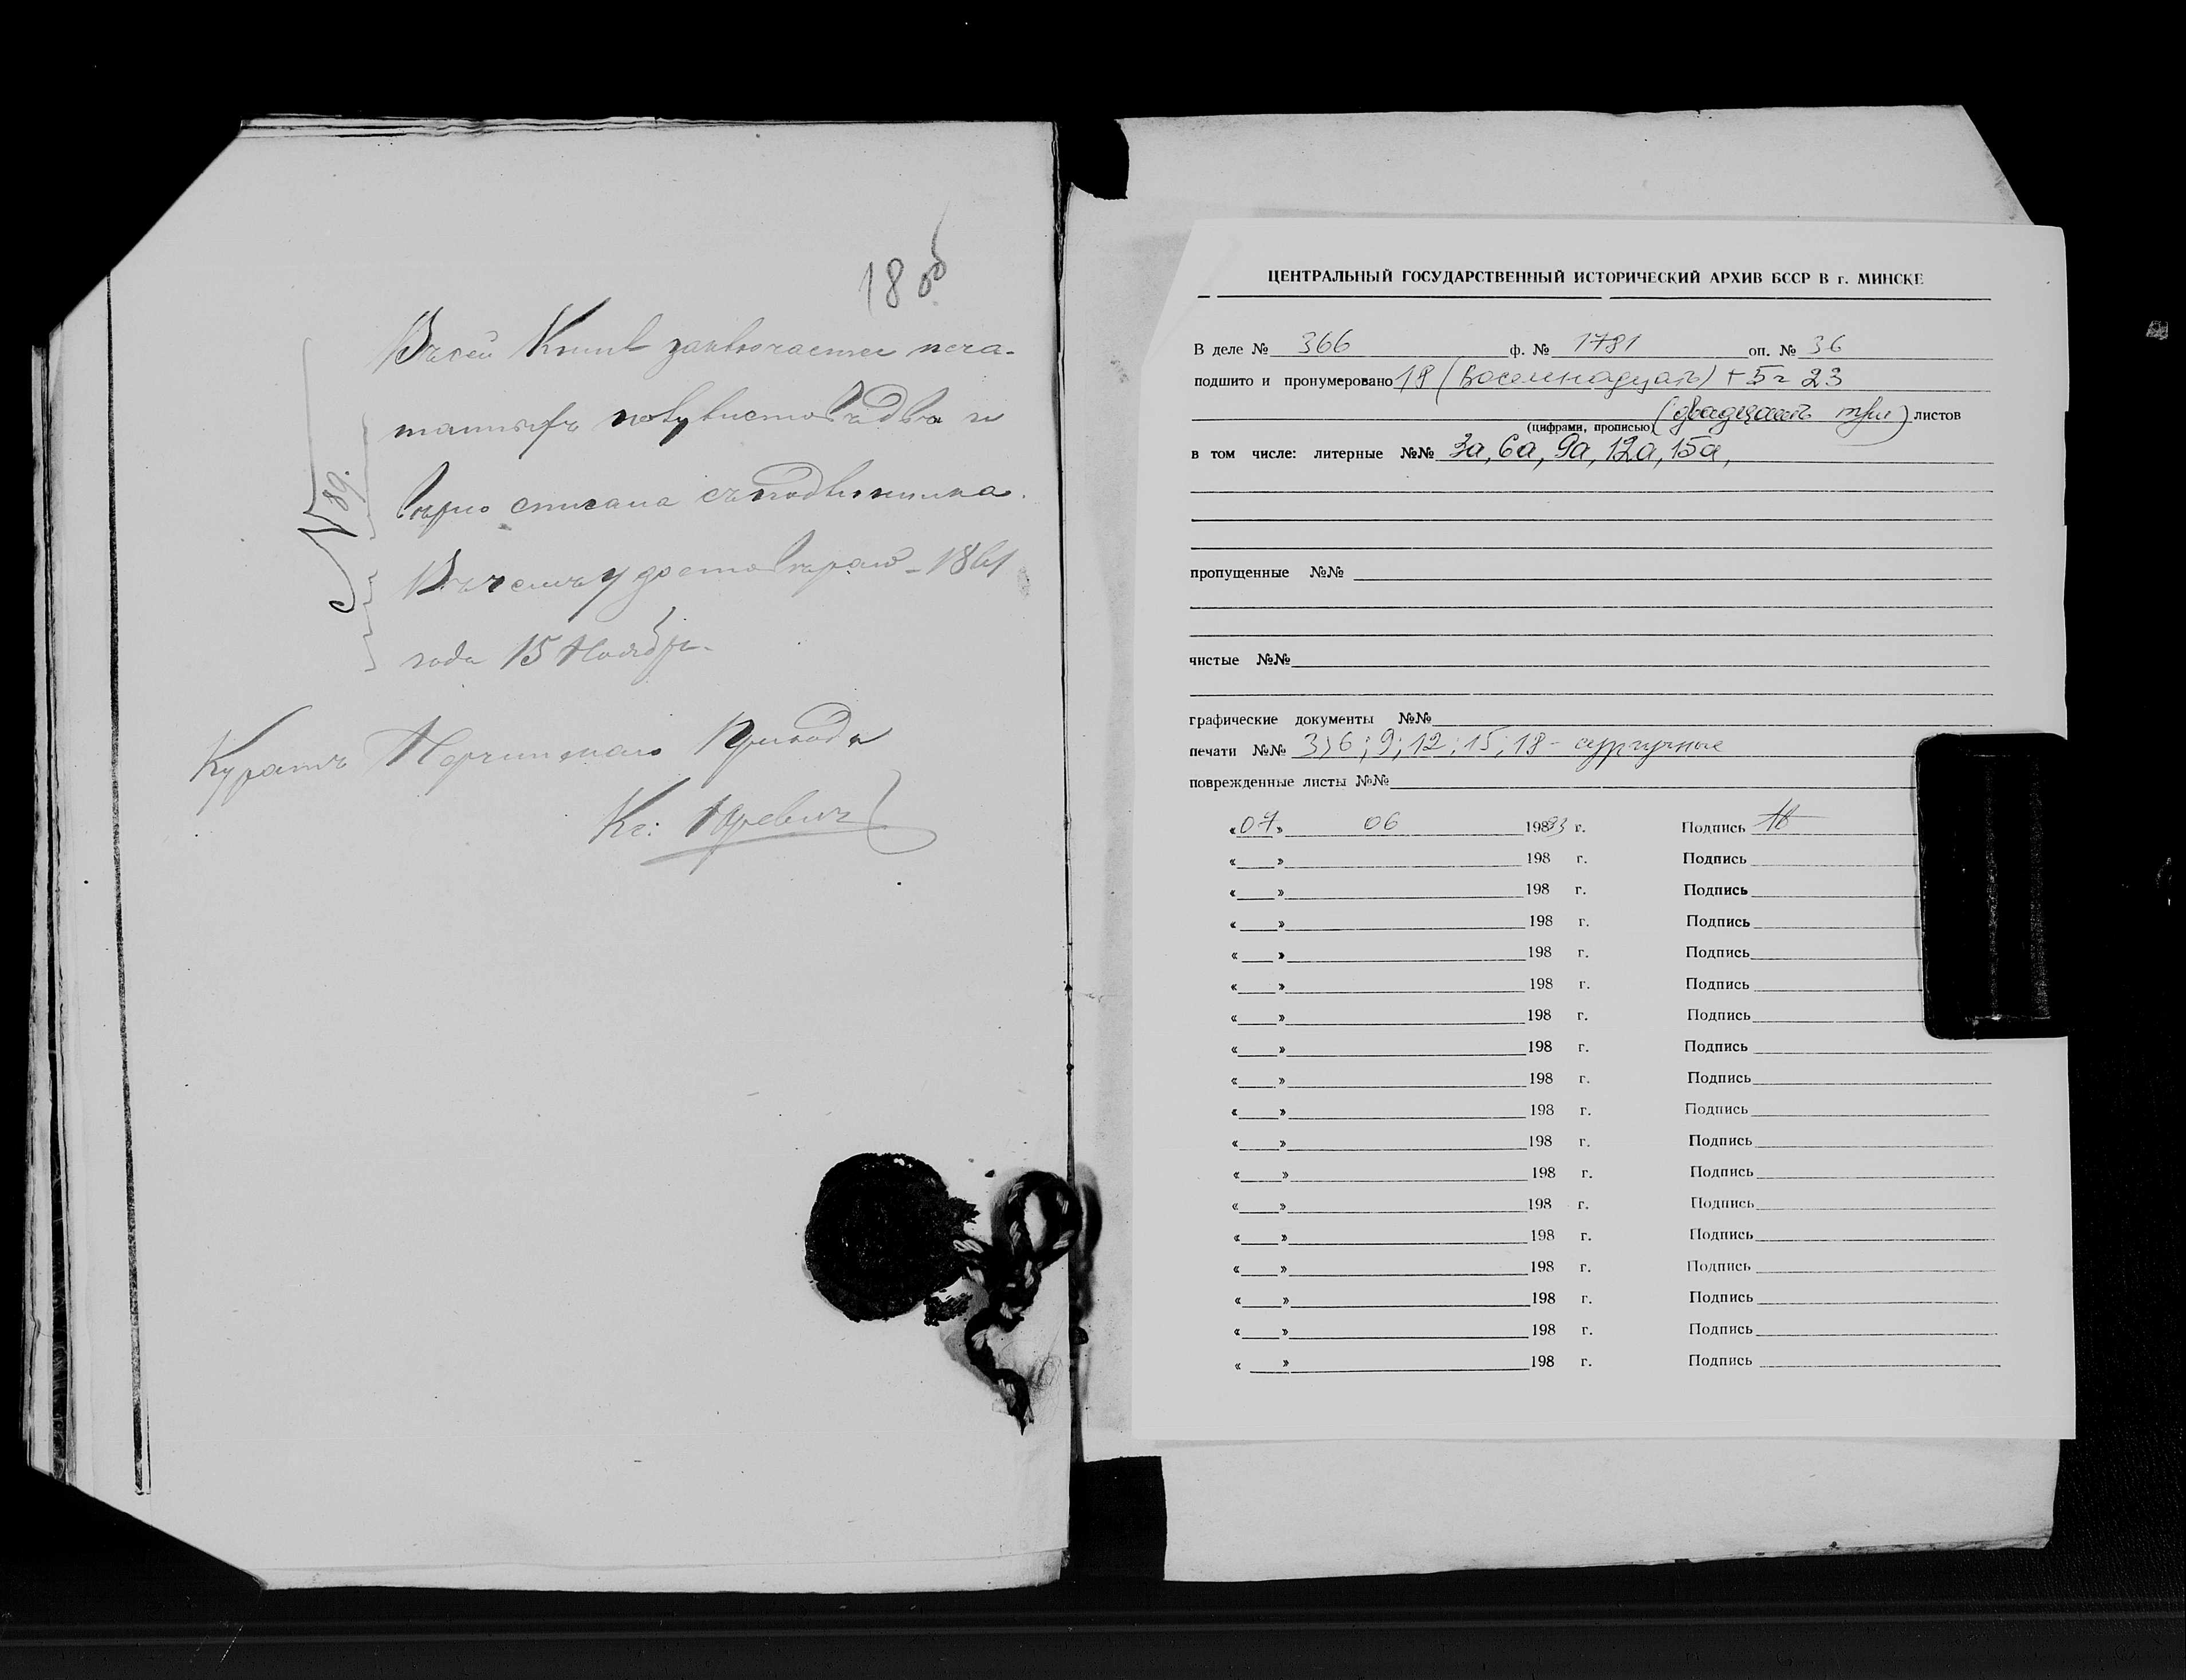 18 об
Въ сей Книгѣ заключается печа-
танныхъ полулистовъ два и
вѣрно списана съ подлинника.
Въ чемъ удостовѣряю - 1861
года 15 Ноябр.
Куратъ Норчинскаго Прихода
Кс: Юревичъ
N 89.
ЦЕНТРАЛЬНЫЙ ГОСУДАРСТВЕННЫЙ ИСТОРИЧЕСКИЙ АРХИВ БССР В г. МИНСКЕ
В деле № 366 ф. № 1781 оп. № 36
подшито и пронумеровано 18 (восемнадцать) + 5 = 23
(двадцать три) листов
(цифрами, прописью)
в том числе: литерные №№ 3а, 6а, 9а, 12а, 15а,
пропущенные №№
чистые №№
графические документы №№
печати №№ 3; 6; 9; 12; 15; 18 - сургучные
поврежденные листы №№
«07» 06 19893 г. Подпись
« » 198 г. Подпись
« » 198 г. Подпись
« » 198 г. Подпись
« » 198 г. Подпись
« » 198 г. Подпись
« » 198 г. Подпись
« » 198 г. Подпись
« » 198 г. Подпись
« » 198 г. Подпись
« » 198 г. Подпись
« » 198 г. Подпись
« » 198 г. Подпись
« » 198 г. Подпись
« » 198 г. Подпись
« » 198 г. Подпись
« » 198 г. Подпись
« » 198 г. Подпись